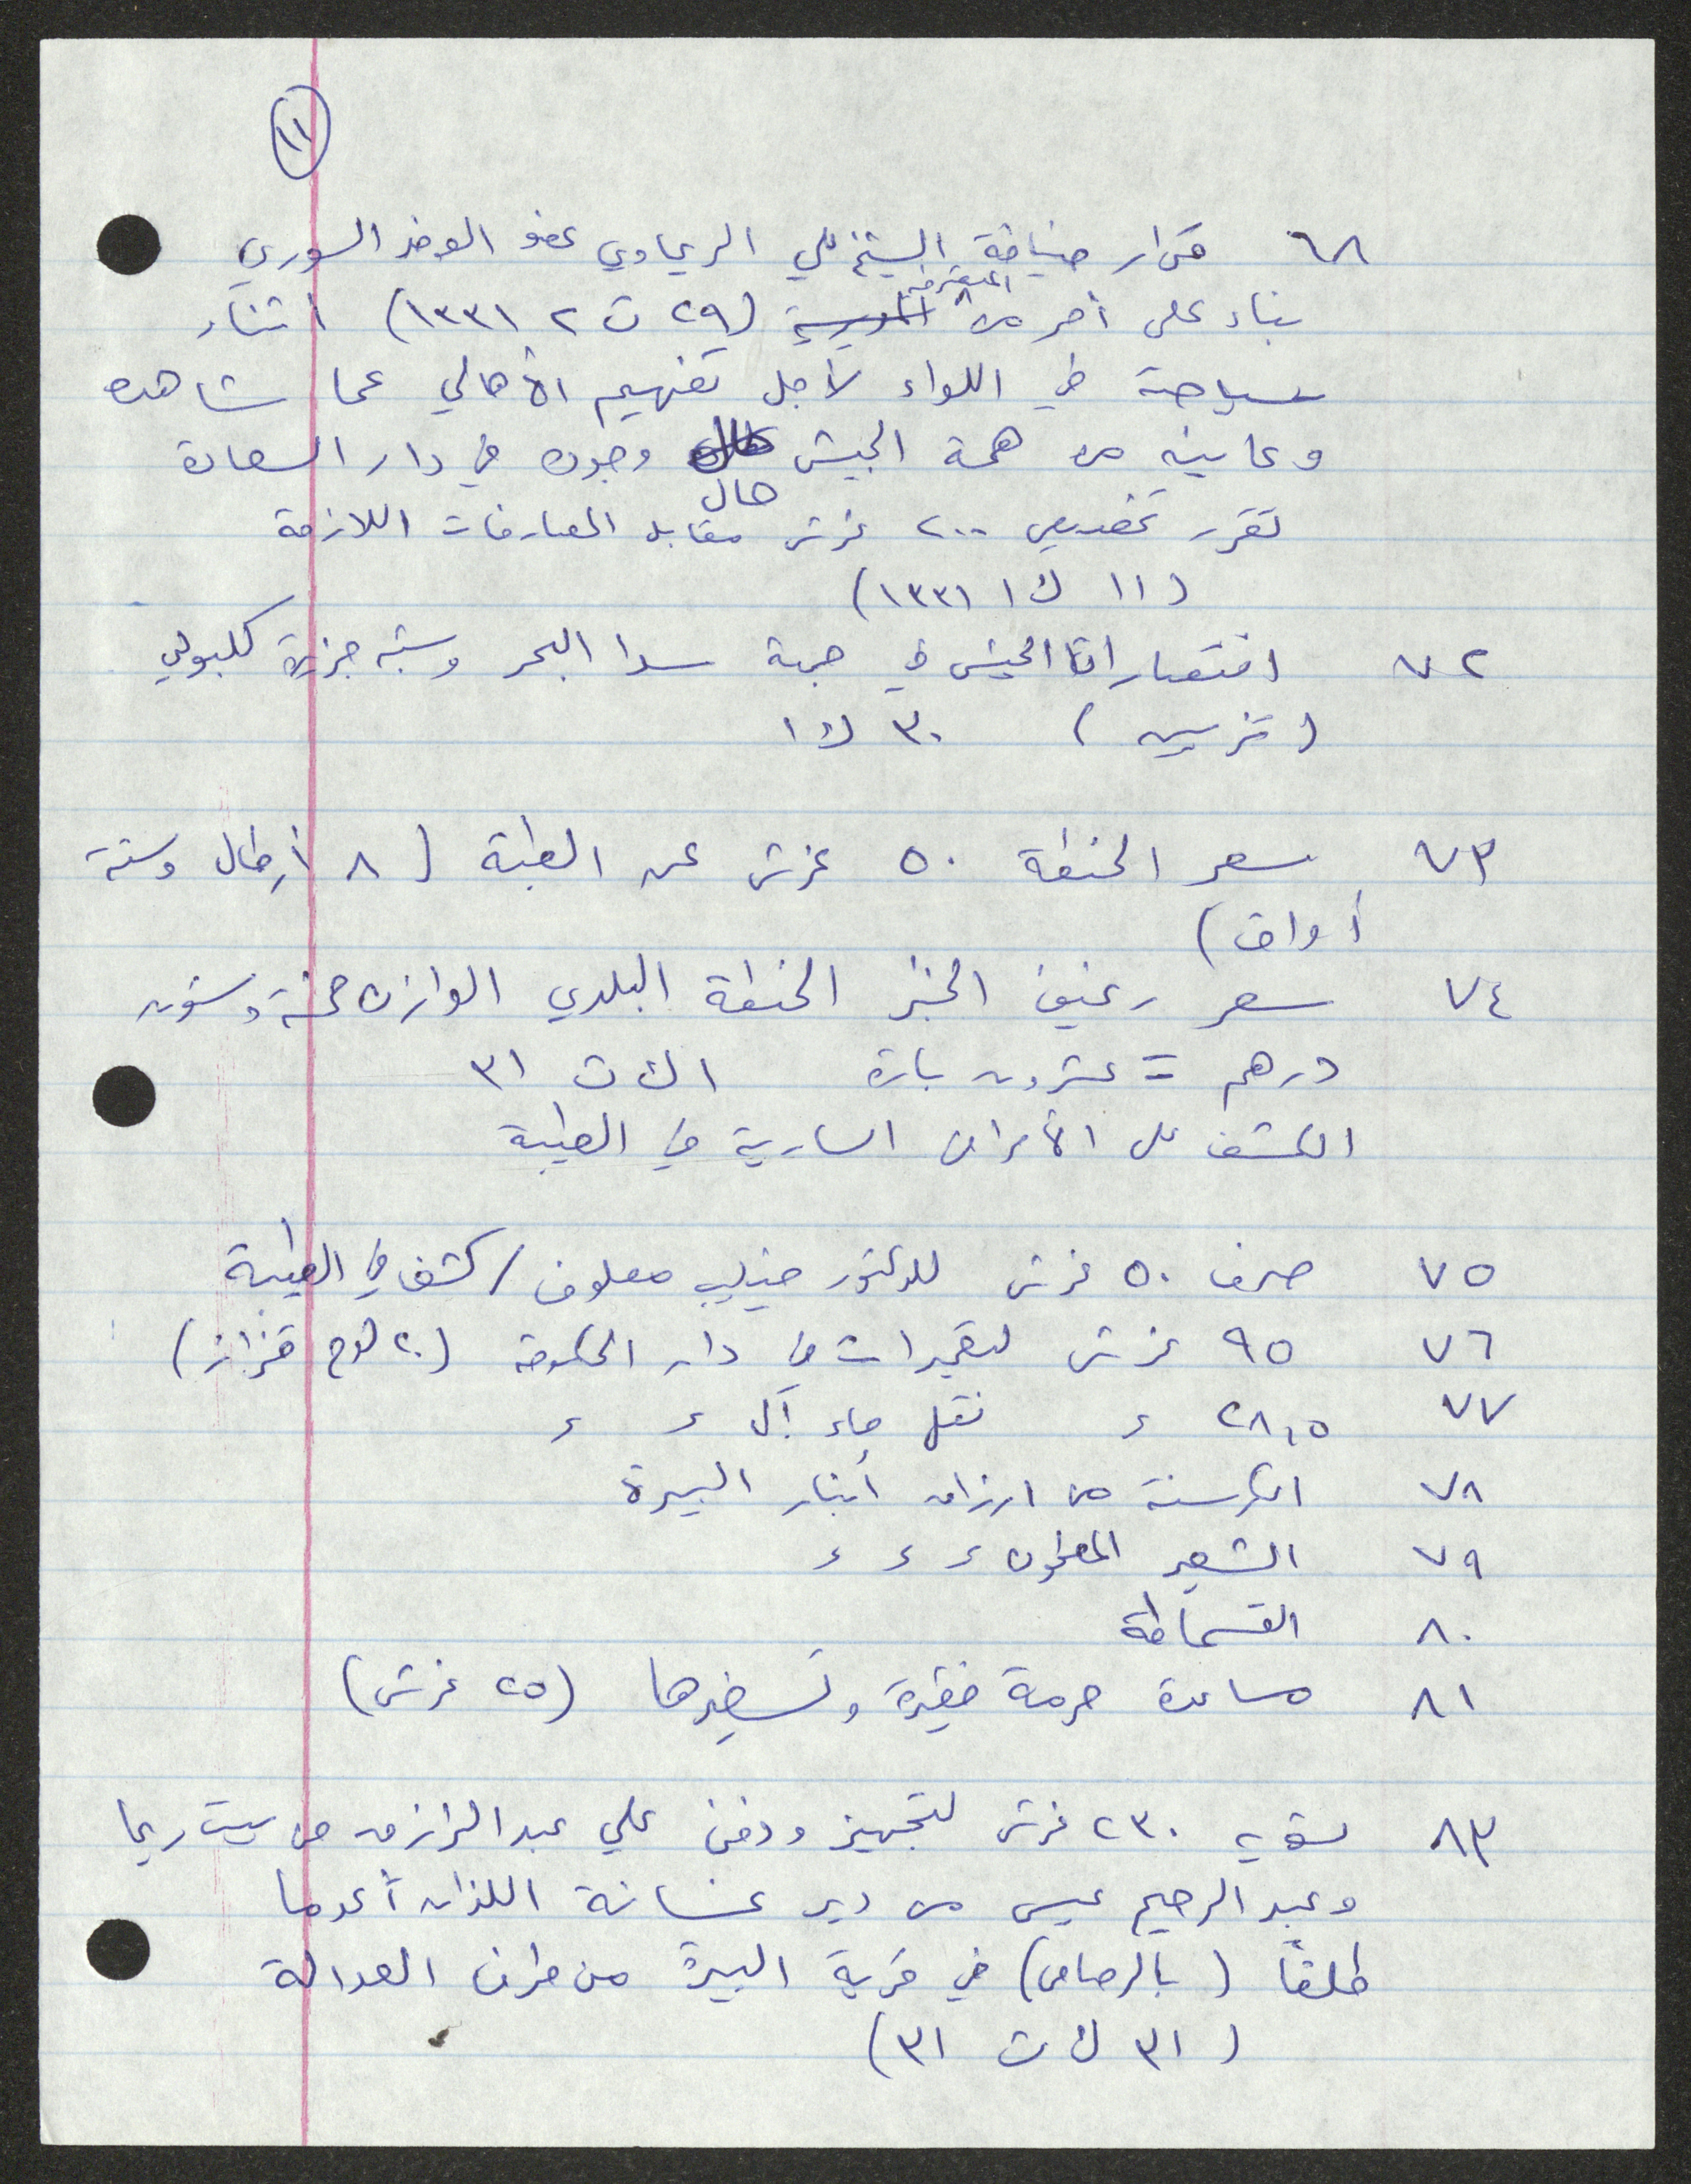 ١١
٦٨ قرار ضيافة الشيخ علي الريماوي عضو الوفد السوري
المتصرفية
بناء على أمر من (٢٩ ت ٢ ١٣٣١) أثناء
سياحة في اللواء لأجل تفهيم الأهالي عما شاهده
وعاينه من همة الجيش وجوده في دار السعادة
حال
تقرر تخصيص ٢٠٠ غرش مقابل المصارفات اللازمة
(١١ ك ١ ١٣٣١)
٧٢ انتصارات الجيش في جهة سدا البحر وشبه جزيرة كليبولي
(تزيين) ٣٠ ك ١
٧٣ سعر الحنطة ٥٠ غرش عن الطبة (٨ أرطال وستة
أواق)
٧٤ سعر رغيف الخبز الحنطة البلدي الوازن خمسة وستون
درهم = عشرون بارة ١ ك ت ٣١
الكشف على الأمراض السارية في الطيبة
٧٥ صرف ٥٠ غرش للدكتور فيليب معلوف / كشف في الطيبة
٧٦ ٩٥ غرش لتعميرات في دار الحكومة (٢٠ لوح قزاز)
٧٧ ٢٨,٥ ء نقل ماء آل ء ء
٧٨ الكرسنة من ارزاق أنبار البيرة
٧٩ الشعير المطحون ء ء ء
٨٠ القسماطة
٨١ مساعدة حرمة فقيرة وتسفيرها (٢٥ غرش)
٨٣ تسويه ٢٣٠ غرش لتجهيز ودفن علي عبد الرازق من بيت ريما
وعبد الرحيم عيسى من دير غسانة اللذان أعدما
طلقاً (بالرصاص) في قرية البيرة من طرف العدالة
(٣١ ك ت ٣١)